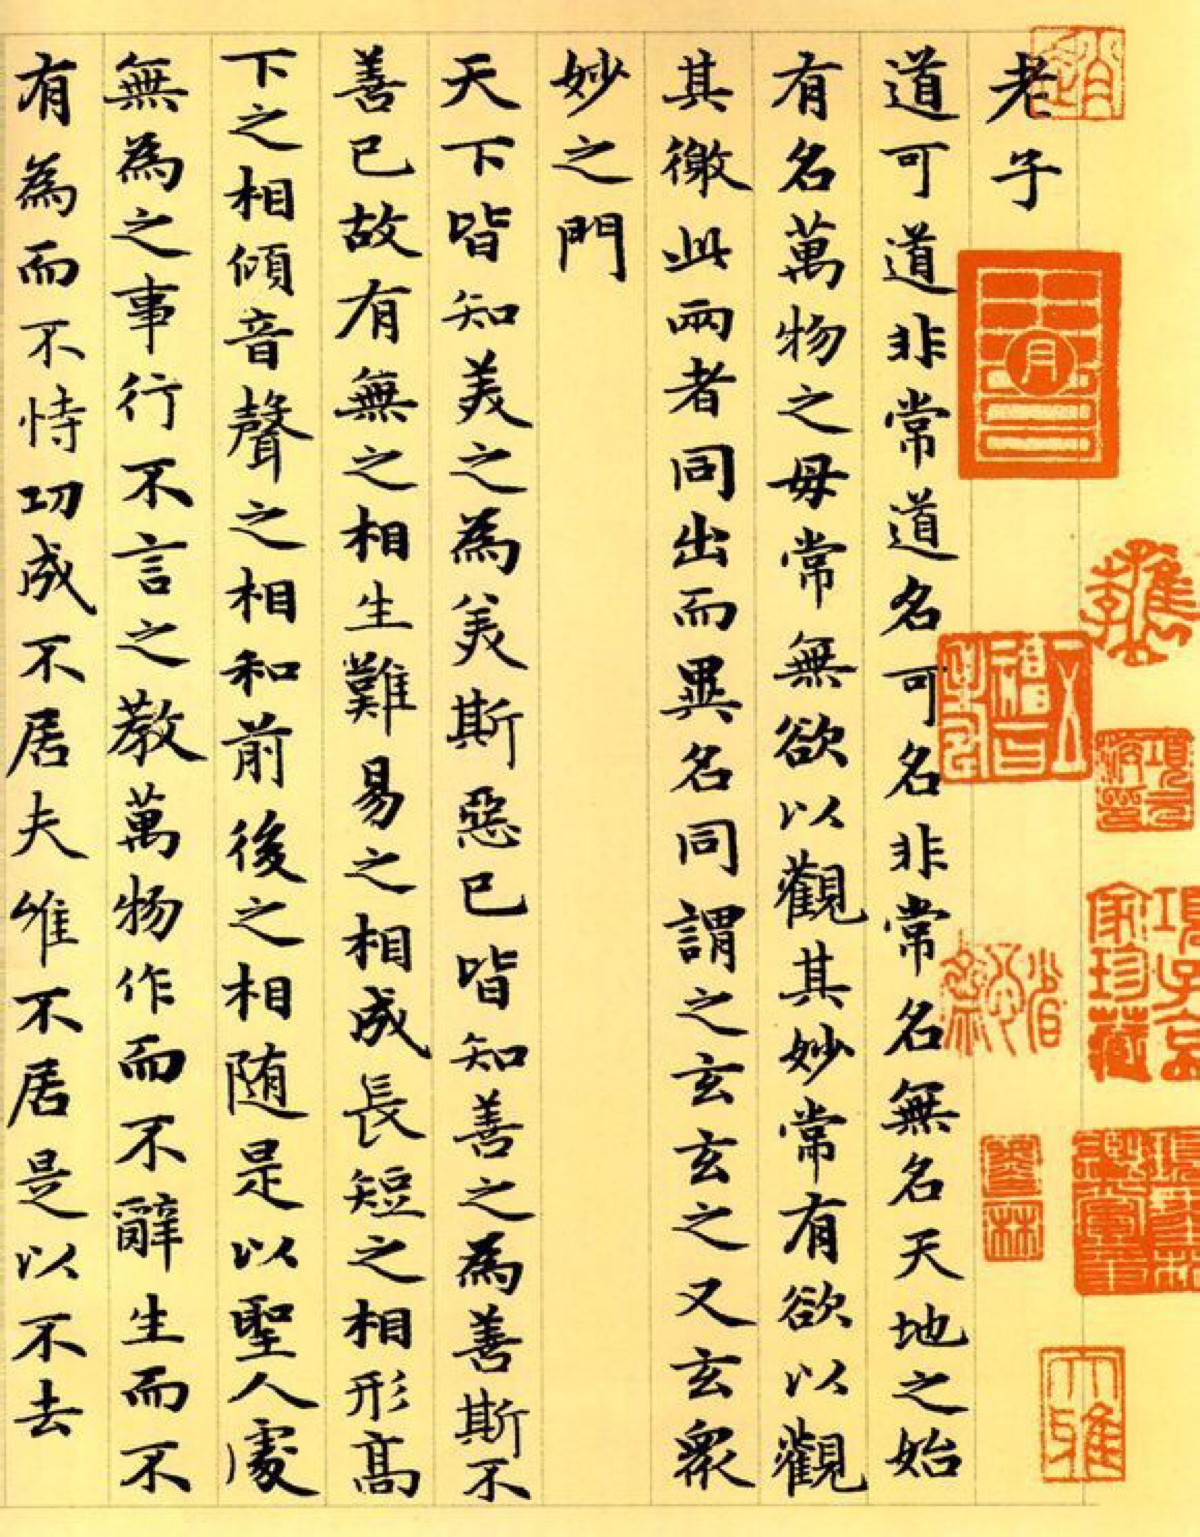 老子
道可道非常道名可名非常名無名天地之始
有名萬物之母常無欲以觀其妙常有欲以觀
其徼此兩者同出而異名同謂之玄玄之又玄眾
妙之門
天下皆知美之為美斯惡已皆知善之為善斯不
善已故有無之相生難易之相成長短之相形高
下之相傾音聲之相和前後之相随是以聖人處
無為之事行不言之教萬物作而不辭生而不
有為而不恃功成不居夫唯不居是以不去
項子京家珍藏